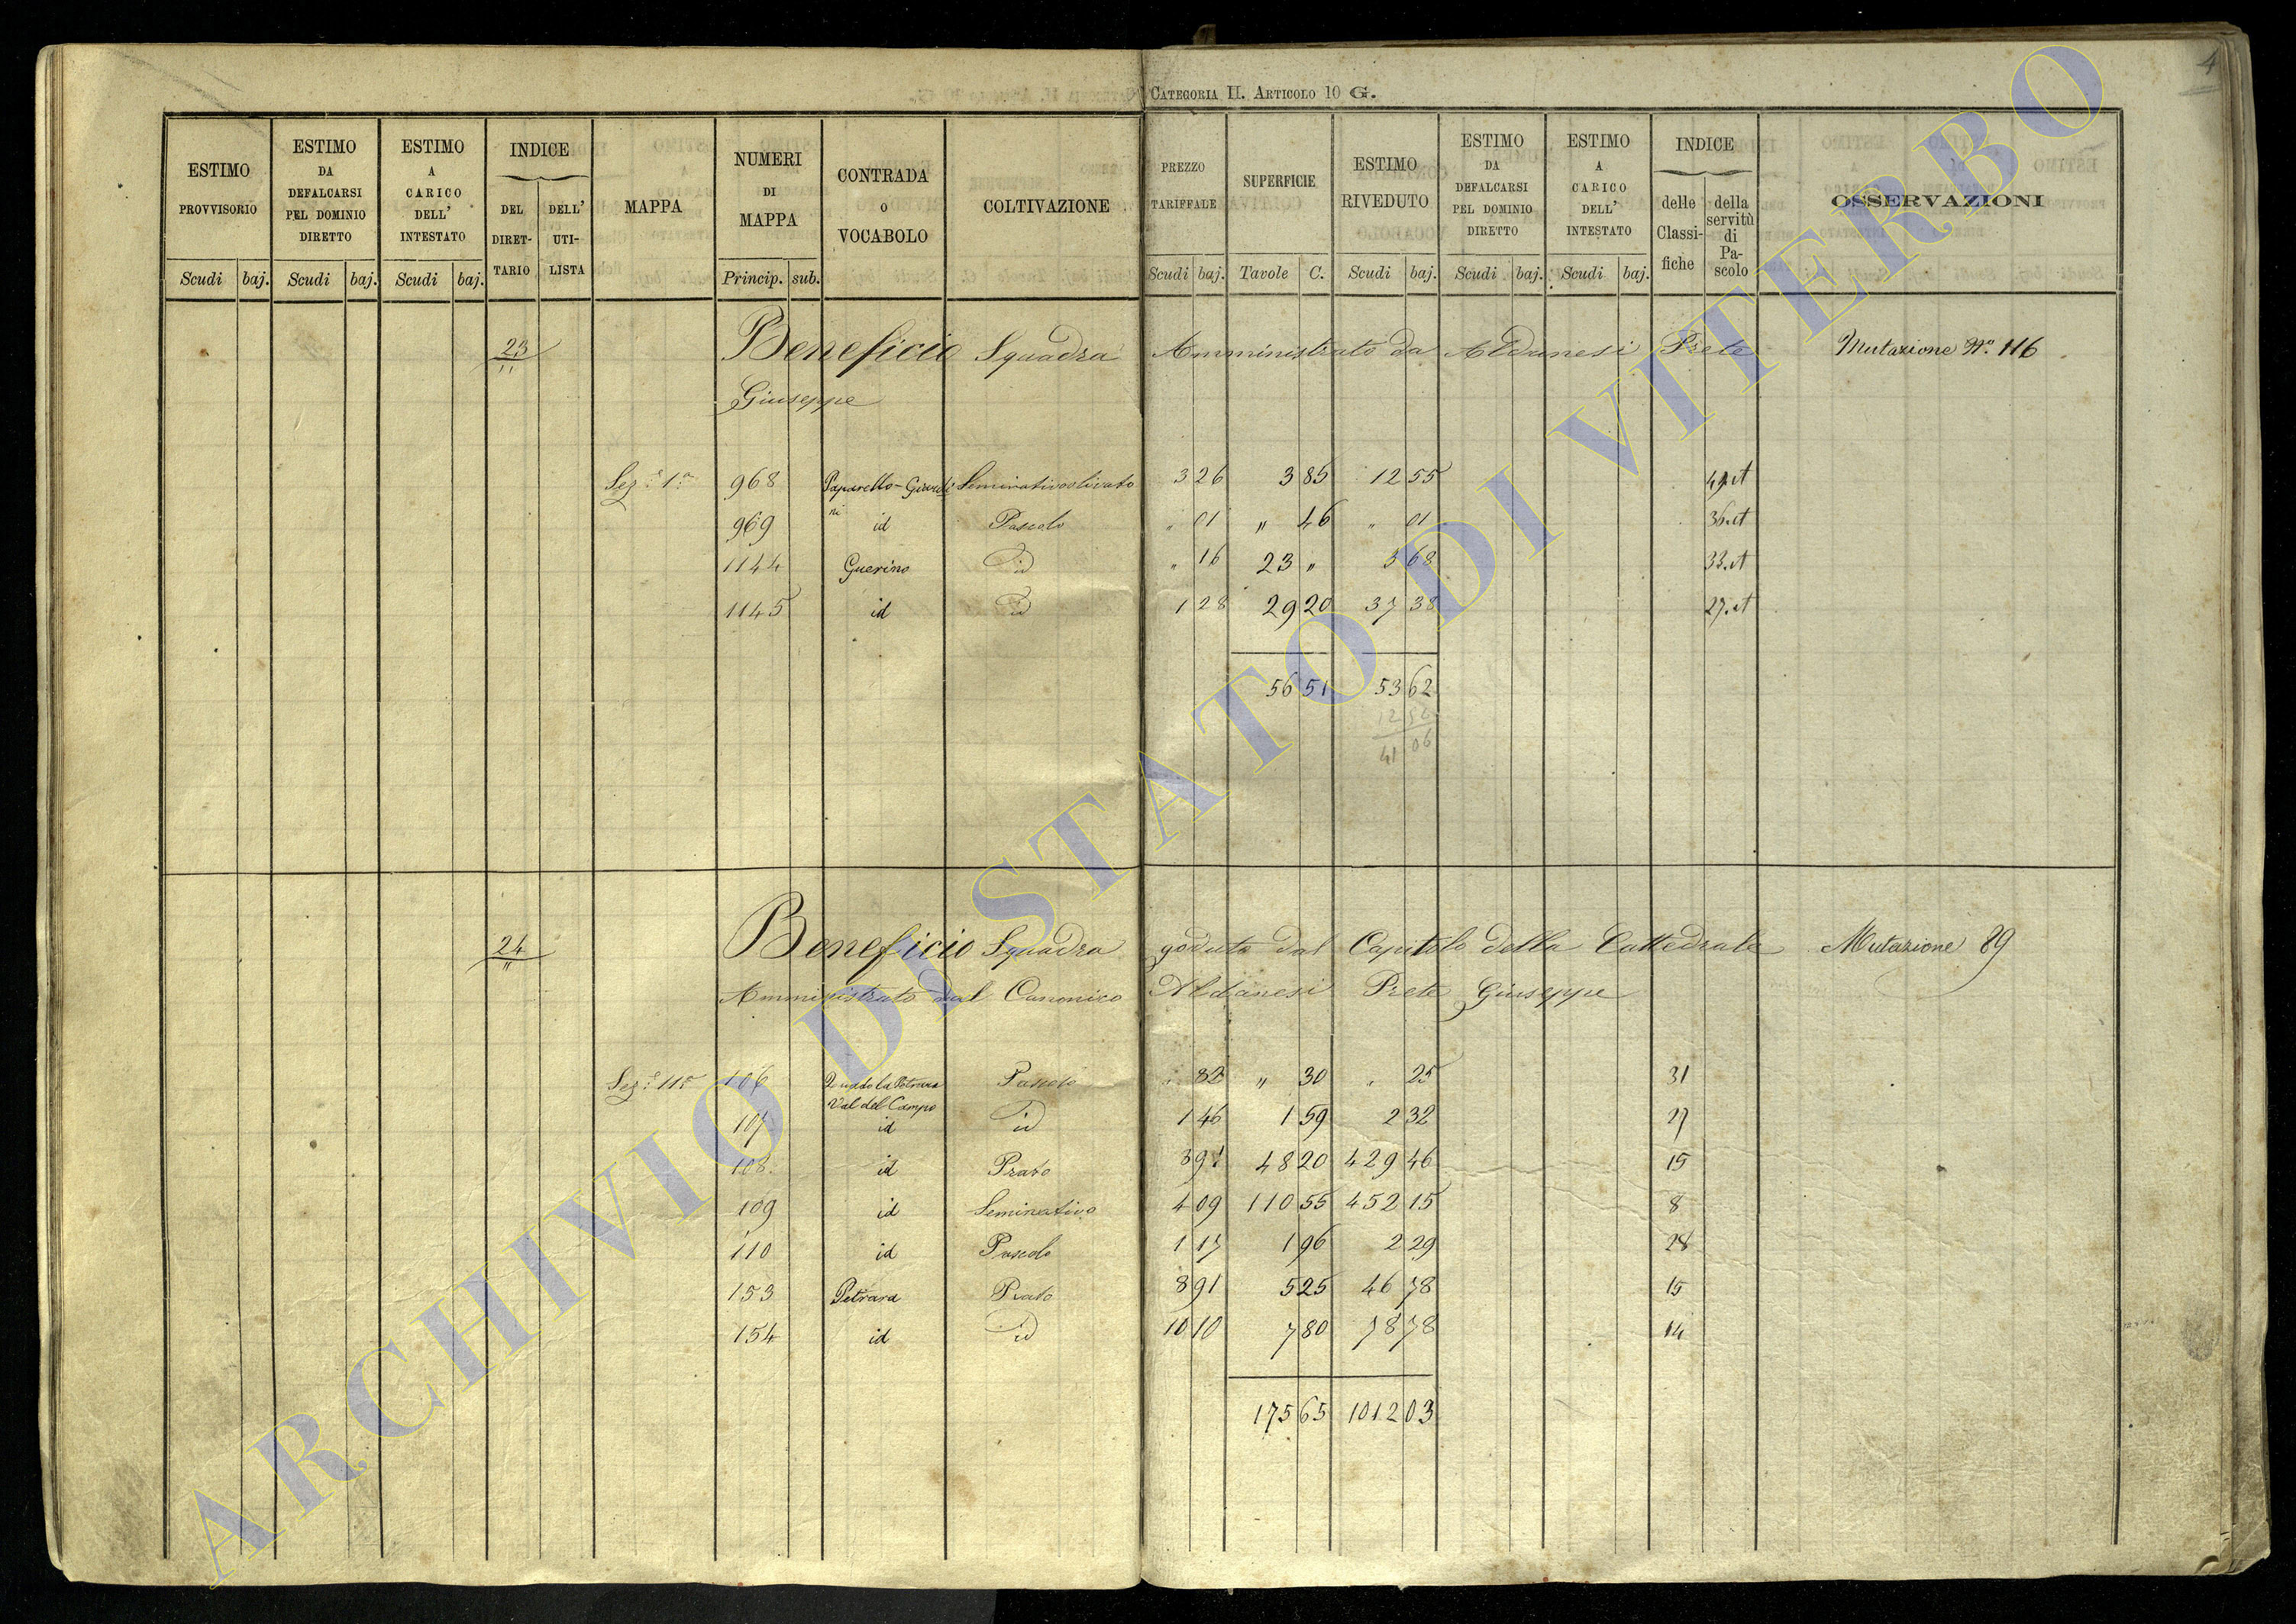 4
CATEGORIA II. ARTICOLO 10 G.
ESTIMO PROVVISORIO Scudi baj.
ESTIMO DA DEFALCARSI PEL DOMINIO DIRETTO Scudi baj.
ESTIMO A CARICO DELL' INTESTATO Scudi baj.
INDICE DEL DIRET-TARIO DELL' UTI-LISTA
MAPPA
NUMERI DI MAPPA Princip. sub.
CONTRADA O VOCABOLO
COLTIVAZIONE
PREZZO TARIFFALE Scudi baj.
SUPERFICIE Tavole C.
ESTIMO RIVEDUTO Scudi baj.
ESTIMO DA DEFALCARSI PEL DOMINIO DIRETTO Scudi baj.
ESTIMO A CARICO DELL' INTESTATO Scudi baj.
INDICE delle Classi-fiche della servitù di Pa-scolo
OSSERVAZIONI
23 Beneficio Squadra Amministrato da Aldanesi Prete Mutazione N.º 116
Giuseppe
Sez.e 1a 968 Seminativo olivato 3 26 3 85 12 55 49.et
969 id Pascolo " 01 " 46 " 01 36.et
1144 Guerino id " 16 23 " 3 68 33.et
1145 id id 1 28 29 20 37 38 27.et
56 51 53 62
41 06
24 Beneficio Squadra goduto dal Capitolo della Cattedrale Mutazione 89
Amministrato dal Canonico Aldanesi Prete Giuseppe
Sez.e 11a 106 la Petrara Pascolo " 83 " 30 " 25 31
Val del Campo
107 id id 1 46 1 59 2 32 27
108 id Prato 48 20 429 46 15
109 id Seminativo 4 09 110 55 452 15 8
110 id Pascolo 1 17 1 96 2 29 28
153 Petrara Prato 8 91 5 25 46 78 15
154 id id 10 10 7 80 78 78 14
175 65 1012 03
ARCHIVIO DI STATO DI VITERBO